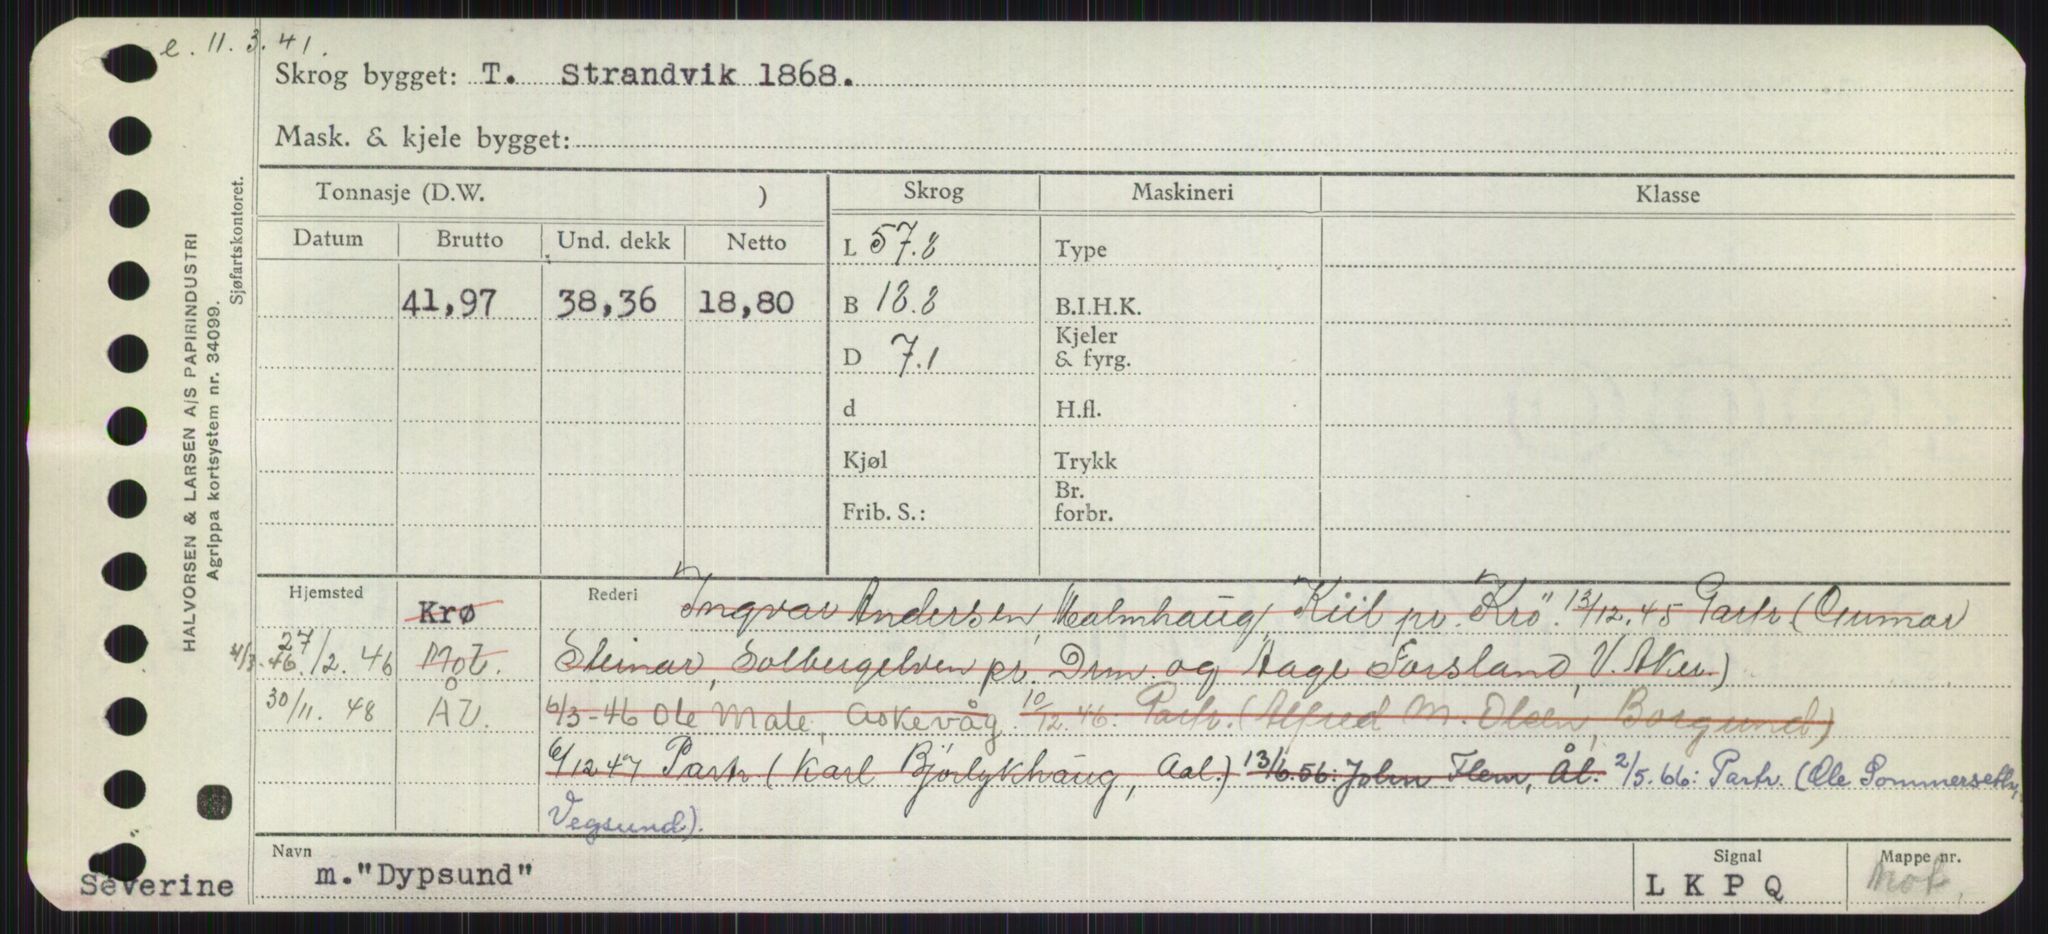 e. 11.3.41.
Skrog bygget: T. Strandvik 1868.
Mask. & kjele bygget:
HALVORSEN & LARSEN A/S PAPIRINDUSTRI
Agrippa kortsystem nr. 34099.
Sjøfartskontoret.
Tonnasje (D.W. ) Skrog Maskineri Klasse
Datum Brutto Und. dekk Netto L 57.8 Type
41,97 38,36 18,80 B 18.8 B.I.H.K.
D 7.1 Kjeler & fyrg.
d H.fl.
Kjøl Trykk
Frib. S.: Br. forbr.
Hjemsted Krø Rederi Ingvar Andersen, Malmhaug, Kiil pr. Krø. 13/12.45 Partr. (Gunnar
27/2.46 Mot. Steinar, Solbergelven pr. Drm. og Aage Forsland, V. Aker.)
30/11.48 ÅV. 6/3-46 Ole Male, Askevåg. 10/12.46. Partr. (Alfred M. Olsen, Borgund)
6/12 47 Partr. (Karl Bjørlykhaug, Aal.) 13/6.56: John Flem, Ål. 2/5.66: Partr. (Ole Sommerseth,
Vegsund).
Navn Signal Mappe nr.
Severine m."Dypsund" L K P Q Mot.